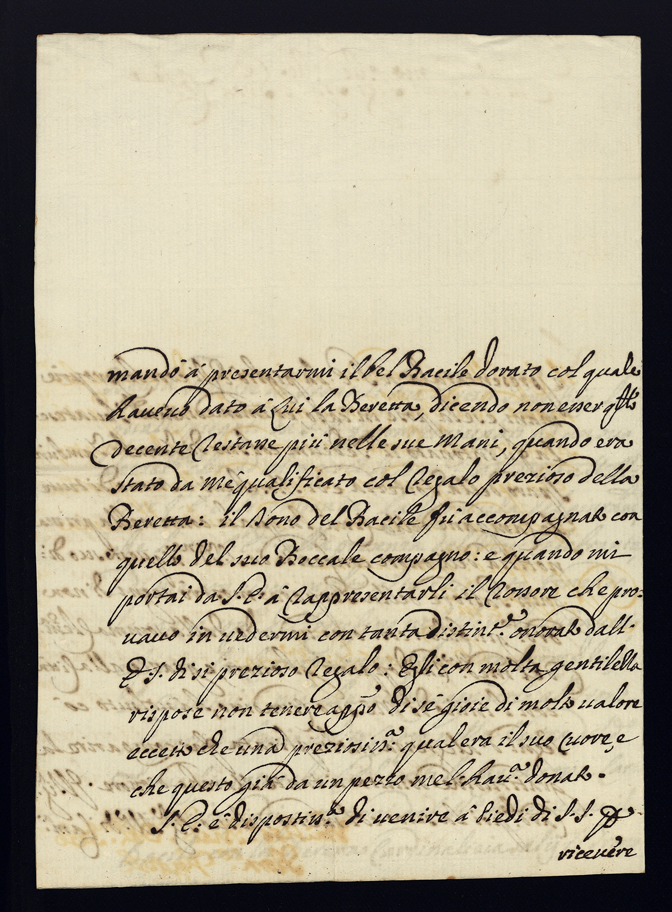 mandò à presentarmi il bel Bacile dorato col quale
havevo dato à Lui la Beretta, dicendo non esser
decente restasse più nelle sue mani, quando era
stato da me qualificato col regalo prezioso della
Beretta: il dono del Bacile fù accompagnato con
quello del suo Boccale compagno: e quando mi
portai da S. E. à rappresentarli il rossore che pro:
vavo in vedermi con tanta distint.ᵃ onorato dall'
E. S. di si prezioso regalo: Egli con molta gentilezza
rispose non tenere app.ᵒ di sé gioie di molto valore
eccetto che una preziosis.ᵃ qual era il suo Cuore, e
che questo già da un pezzo me l'hav.ᵃ donato.
S. E. è dispostis.ᵃ di venire à Piedi di S. S. p
ricevere